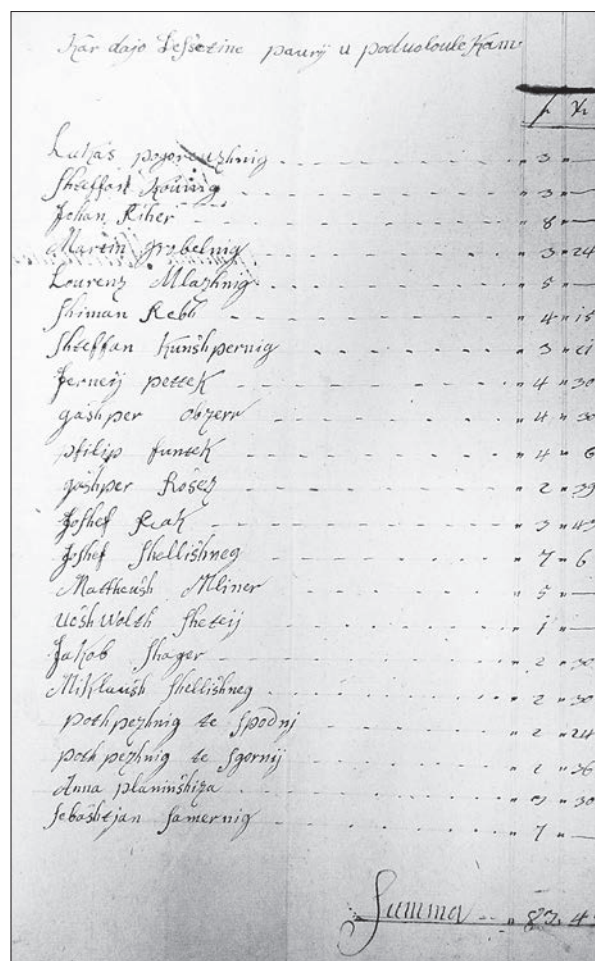 Kar dajo Desśetine paurij u poduoloule Kam
f Xr
Lukas pogoreuzhnig " 3 " —
Shteffan Kounig " 3 " —
Johan Riher " 8 " —
Martin grobelnig " 3 " 24
Lourenz Mlazhnig " 5 " —
Shiman Rebb " 4 " 15
Shteffan Kunshpernig " 3 " 21
Jerneij pettek " 4 " 30
gashper obzerr " 4 " 30
philip funtek " 4 " 6
gashper Rosez " 2 " 39
Joshef Rak " 3 " 43
Joshef Shellishneg " 7 " 6
Mattheush Mliner " 5 " —
ueshWolth Sheteij " 1 " —
Jakob Shager " 2 " 30
Miklaush Shellishneg " 2 " 30
pothpezhnig te Spodnj " 2 " 24
pothpezhnig te Sgornij " 2 " 36
Anna planinshiza " 30
Sebashtjan Samernig " 7 " —
Summa " 82. 4